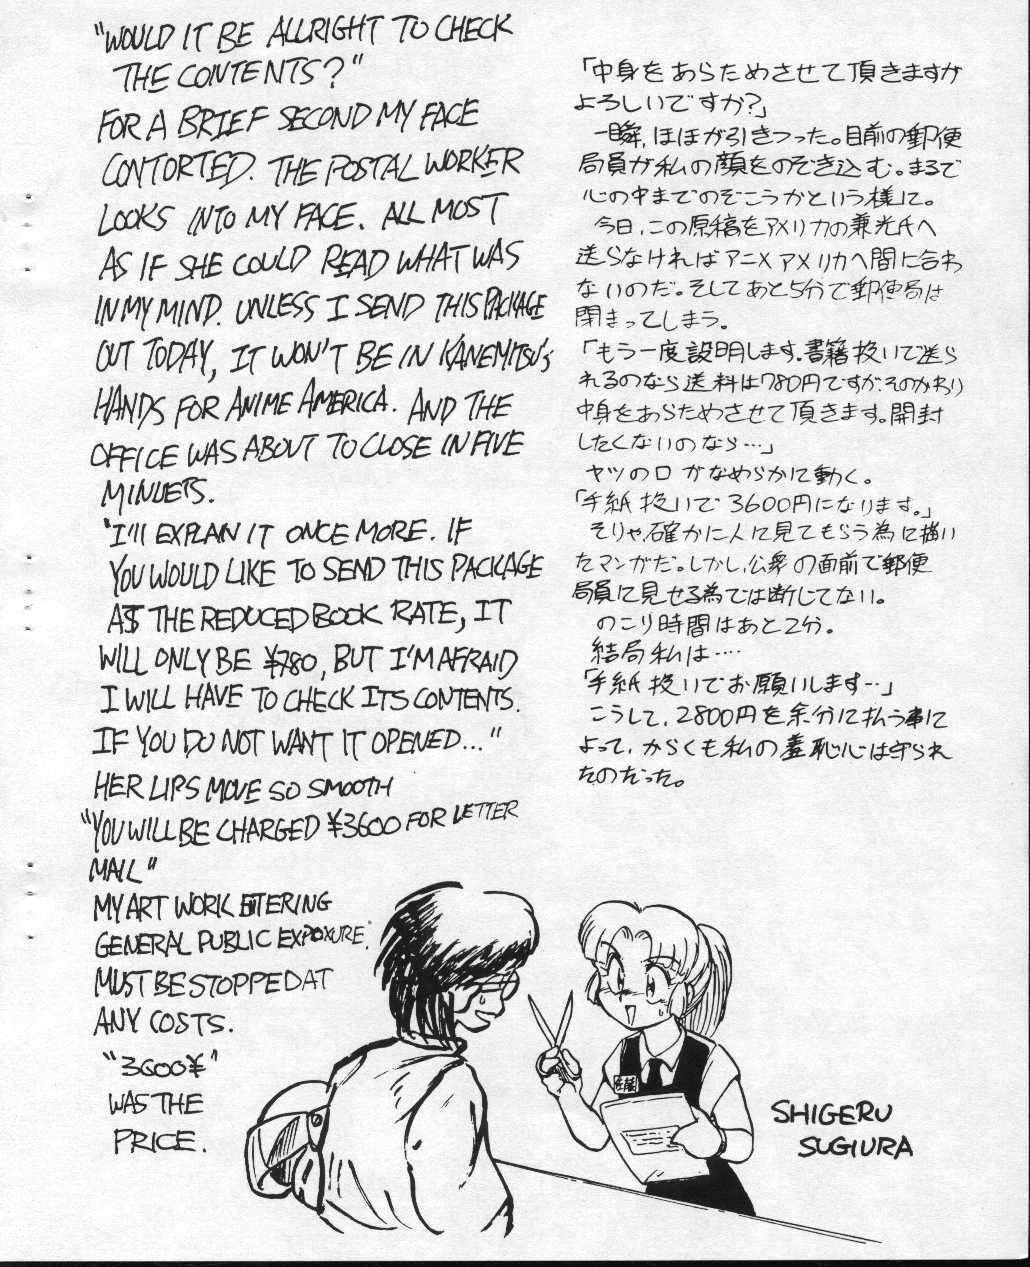 "WOULD IT BE ALLRIGHT TO CHECK
THE CONTENTS?"
FOR A BRIEF SECOND MY FACE
CONTORTED. THE POSTAL WORKER
LOOKS INTO MY FACE. ALL MOST
AS IF SHE COULD READ WHAT WAS
IN MY MIND. UNLESS I SEND THIS PACKAGE
OUT TODAY, IT WON'T BE IN KANEMITSU'S
HANDS FOR ANIME AMERICA. AND THE
OFFICE WAS ABOUT TO CLOSE IN FIVE
MINUETS.
"I'll EXPLAIN IT ONCE MORE. IF
YOU WOULD LIKE TO SEND THIS PACKAGE
AS THE REDUCED BOOK RATE, IT
WILL ONLY BE ¥780, BUT I'M AFRAID
I WILL HAVE TO CHECK ITS CONTENTS.
IF YOU DO NOT WANT IT OPENED..."
HER LIPS MOVE SO SMOOTH
"YOU WILL BE CHARGED ¥3600 FOR LETTER
MAIL"
MY ART WORK ETERING
GENERAL PUBLIC EXPOXURE.
MUST BE STOPPED AT
ANY COSTS.
"3600¥"
WAS THE
PRICE.
「中身をあらためさせて頂きますが
よろしいですか?」
一瞬,ほほが引きつった。目前の郵便
局員が私の顔をのぞき込む。まるで
心の中までのぞこうかという様に。
今日,この原稿をアメリカの兼光氏へ
送らなければアニメアメリカへ間に合わ
ないのだ。そしてあと5分で郵便局は
閉まってしまう。
「もう一度説明します.書籍扱いで送ら
れるのなら送料は780円ですが,そのかわり
中身をあらためさせて頂きます。開封
したくないのなら…」
ヤツの口がなめらかに動く。
「手紙扱いで3600円になります。」
そりゃ,確かに人に見てもらう為に描い
たマンガだ。しかし,公衆の面前で郵便
局員に見せる為では断じてない。
のこり時間はあと2分。
結局私は‥‥
「手紙扱いでお願いします…」
こうして,2800円を余分に払う事に
よって,からくも私の羞恥心は守られ
たのだった。
佐藤
SHIGERU
SUGIURA